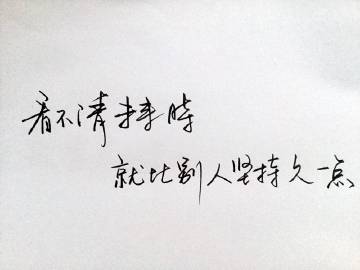 看不清未来時
就比别人坚持久一点